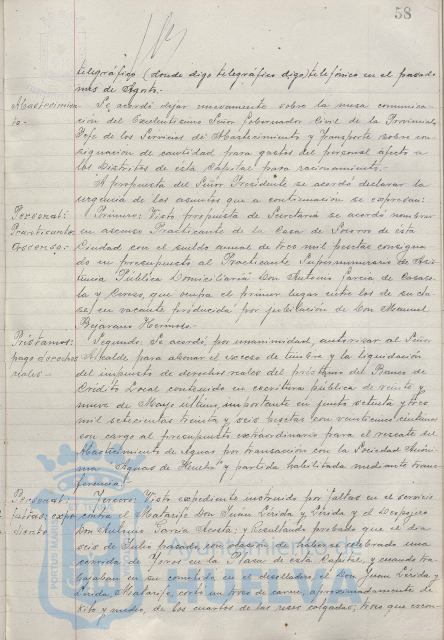 58
telegráfico (donde digo telegráfico digo) telefónico en el pasado
mes de Agosto.
Abastecimien
to.-
Se acordó dejar nuevamente sobre la mesa comunica-
ción del Excelentísimo Señor Gobernador Civil de la Provincia,
Jefe de los Servicios de Abastecimiento y Transporte sobre con-
signación de cantidad para gastos del personal afecto a
los Distritos de esta Capital para racionamiento.-
A propuesta del Señor Presidente se acordó declarar la
urgencia de los asuntos que a continuación se expresan:
Personal:
Practicante
ascenso.-
Primero: Visto propuesta de Secretaría se acordó nombrar
en ascenso Practicante de la Casa de Socorro de esta
Ciudad con el sueldo anual de tres mil pesetas consigna
do en presupuesto al Practicante Supernumerario de Asis
tencia Pública Domiciliaria Don Antonio García de Casaso
la y Cerezo, que ocupa el primer lugar entre los de su cla
se, en vacante producida por jubilación de Don Manuel
Bejarano Hermoso.-
Préstamos:
pago derechos
reales.-
Segundo: Se acordó por unanimidad, autorizar al Señor
Alcalde para abonar el exceso de timbre y la liquidación
del impuesto de derechos reales del préstamo del Banco de
Crédito Local contenido en escritura pública de veinte y
nueve de Mayo último, importante en junto setenta y tres
mil setecientas treinta y seis pesetas con veinticinco céntimos
con cargo al presupuesto extraordinario para el rescate del
Abastecimiento de Aguas por transacción con la Sociedad Anóni
ma "Aguas de Huelva" y partida habilitada mediante trans
ferencia.-
Personal:
faltas: expe
diente.-
Tercero: Visto expediente instruido por faltas en el servicio
contra el Matarife Don Juan Lérida y Lérida y el Despojero
Don Antonio García Acosta; y Resultando probado que el día
seis de Julio pasado, con ocasión de haberse celebrado una
corrida de Toros en la Plaza de esta Capital, y cuando tra
bajaban en su cometido en el desolladero, el Don Juan Lérida y
Lérida, Matarife, cortó un trozo de carne, aproximadamente de
kilo y medio, de los cuartos de las reses colgadas, trozo que escon-
Ayuntamiento de
HUELVA